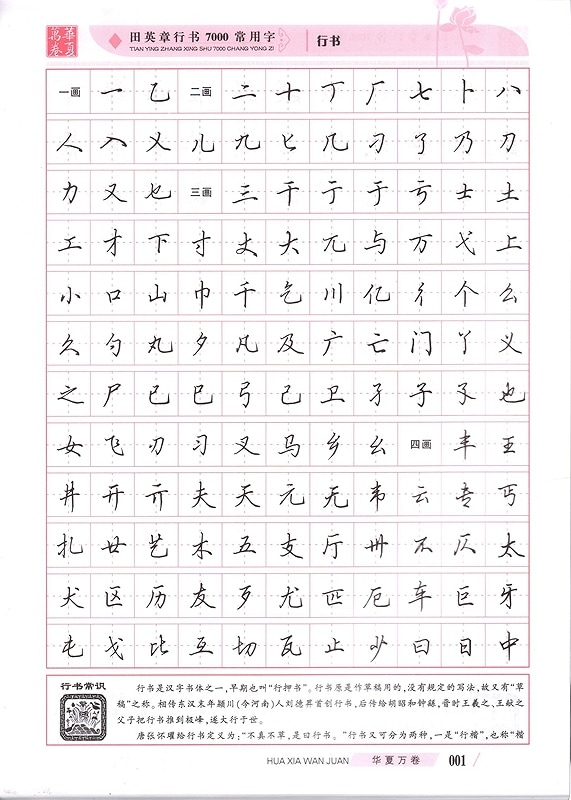 華夏
萬卷
田英章行书 7000 常用字
TIAN YING ZHANG XING SHU 7000 CHANG YONG ZI
行书
一画 一 乙 二画 二 十 丁 厂 七 卜 八
人 入 乂 儿 九 匕 几 刁 了 乃 刀
力 又 乜 三画 三 干 亍 于 亏 士 土
工 才 下 寸 丈 大 兀 与 万 弋 上
小 口 山 巾 千 乞 川 亿 彳 个 么
久 勺 丸 夕 凡 及 广 亡 门 丫 义
之 尸 已 巳 弓 己 卫 孑 子 孓 也
女 飞 刃 习 叉 马 乡 幺 四画 丰 王
井 开 亓 夫 天 元 无 韦 云 专 丐
扎 廿 艺 木 五 支 厅 卅 不 仄 太
犬 区 历 友 歹 尤 匹 厄 车 巨 牙
屯 戈 比 互 切 瓦 止 少 曰 日 中
行书常识
行书是汉字书体之一，早期也叫“行押书”。行书原是作草稿用的，没有规定的写法，故又有“草
稿”之称。相传东汉末年颍川（今河南）人刘德昇首创行书，后传给胡昭和钟繇，晋时王羲之、王献之
父子把行书推到极峰，遂大行于世。
唐张怀瓘给行书定义为：“不真不草，是曰行书。”行书又可分为两种，一是“行楷”，也称“楷
HUA XIA WAN JUAN
华夏万卷
001